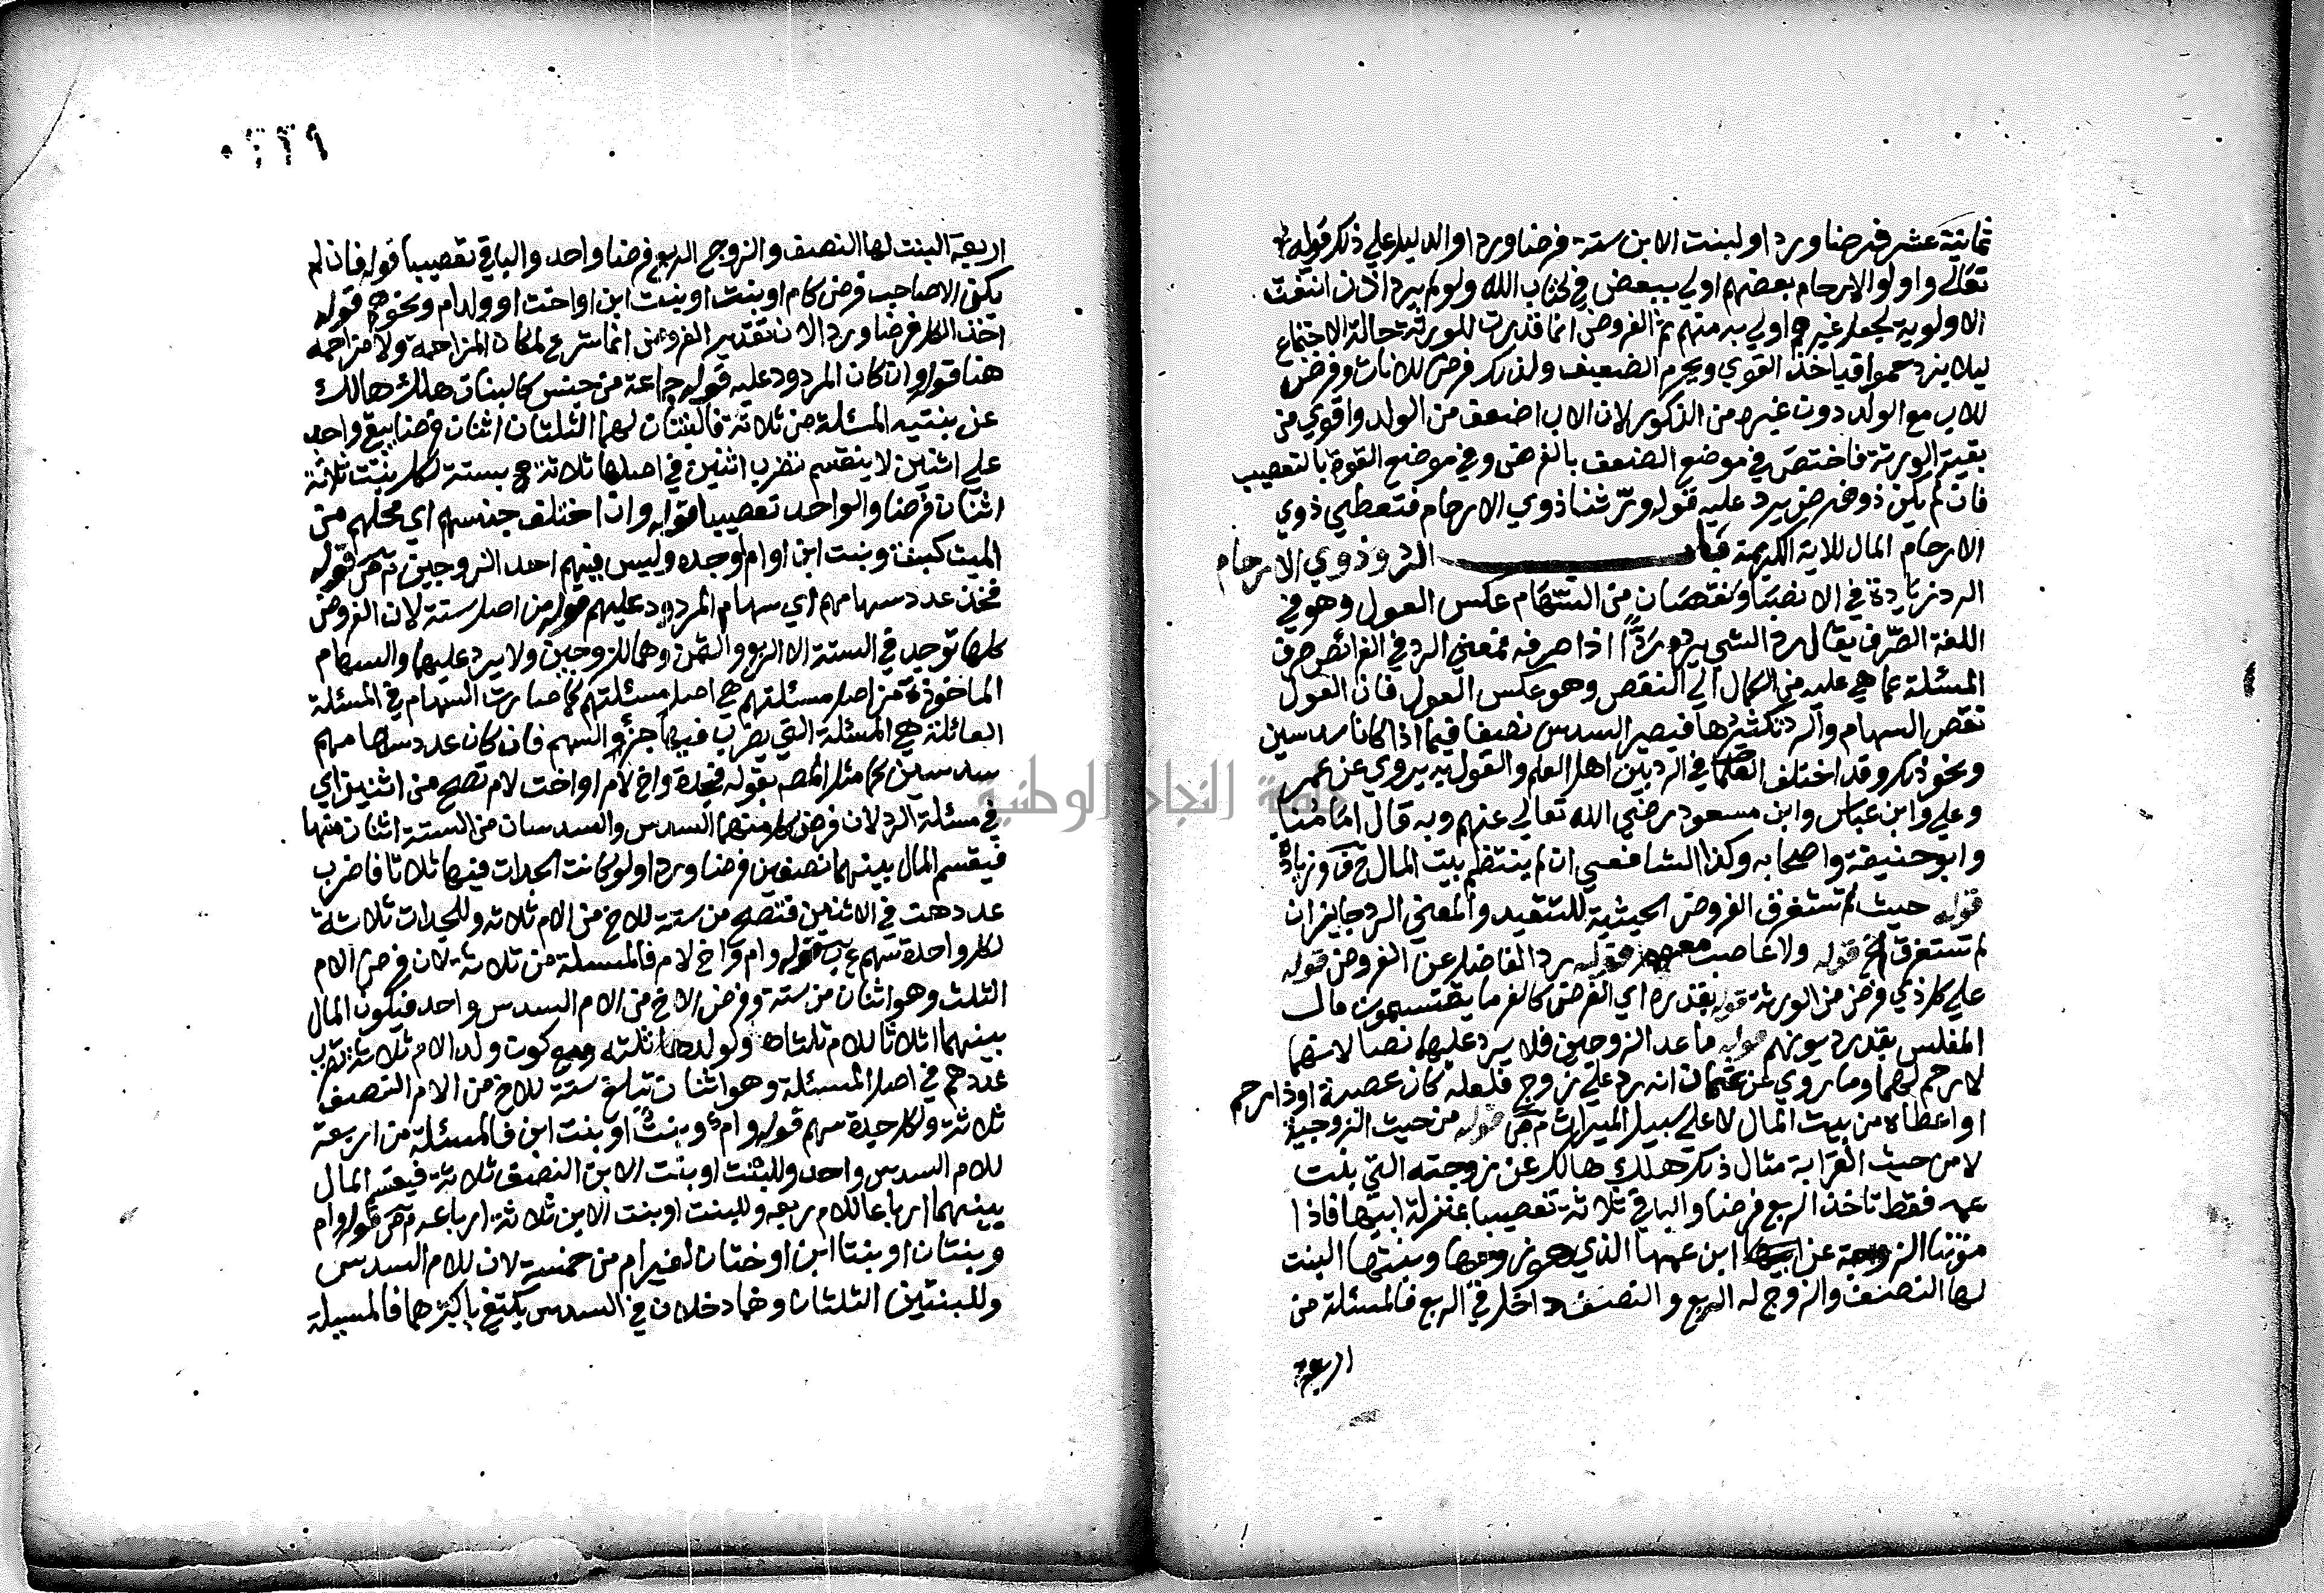 ثمانية عشر فرضا وردا ولبنت الابن ستة فرضا وردا والدليل علي ذلك قوله
تعالي واولو الارحام بعضهم اولي ببعض في كتاب الله ولو لم يرد اذن انتفت
الاولوية لجعل غيرهم اولي به منهم ثم الفروض انما قدرت للورثة حالة الاجتماع
ليلا يزدحموا فياخذ القوي ويحرم الضعيف ولذلك فرض للاناث وفرض
للاب مع الولد دون غيره من الذكور لان الاب اضعف من الولد واقوي من
بقية الورثة فاختص في موضع الضعف بالفرض وفي موضع القوة بالتعصيب
فان لم يكن ذو فرض يرد عليه قوله ورثنا ذوي الارحام فتعطي ذوي
الارحام المال للاية الكريمة باب الرد وذوي الارحام
الرد زيادة في الانصبا ونقصان من السهام عكس العول وهو في
اللغة الصرف يقال رد الشي يرده ردا اذا صرفه فمعني الرد في الفرائض صرف
المسئلة عما هي عليه من الكمال الي النقص وهو عكس العول فان العول
نقص السهام والرد تكثيرها فيصير السدس نصفا فيما اذا كانا سدسين
ونحو ذلك وقد اختلف العلما في الرد بين اهل العلم والقول به يروي عن عمر
وعلي وابن عباس وابن مسعود رضي الله تعالي عنهم وبه قال امامنا
وابو حنيفة واصحابه وكذا الشافعي ان لم ينتظم بيت المال وزيادة
قوله حيث لم تستغرق الفروض الحيثية للتقييد والمعني الرد جايز ان
لم تستغرق الخ قوله ولا عاصب معهم قوله يرد الفاضل عن الفروض قوله
علي كل ذي فرض من الورثة قوله بقدره اي الفرض كالغرما يقتسمون مال
المفلس بقدر ديونهم قوله ما عدا الزوجين فلا يرد عليهما نصا لانهما
لا رحم لهما وما روي عن عثمان انه رد علي زوج فلعله كان عصبة او ذا رحم
او اعطاه من بيت المال لا علي سبيل الميراث قوله من حيث الزوجية
لا من حيث القرابة مثال ذلك هلك هالك عن زوجته التي بنت
عمه فقط تاخذ الربع فرضا والباقي ثلاثة تعصيبا بمنزلة ابيها فاذا
الزوجة عن ابن عمها الذي هو زوجها وبنتها البنت
لها النصف والزوج له الربع والنصف داخل في الربع فالمسئلة من
اربعة
اربعة البنت لها النصف والزوج الربع فرضا واحد والباقي تعصيبا قوله فان لم
يكن الا صاحب فرض كام او بنت او بنت ابن او اخت او ولد ام ونحوهم قوله
اخذ الكل فرضا وردا لان تقدير الفروض انما شرع لمكان المزاحمة ولا مزاحمة
هنا قوله وان كان المردود عليه قوله جماعة من جنس كالبنات هلك هالك
عن بنتيه المسئلة من ثلاثة فالبنتان لهما الثلثان اثنان فرضا يبقي واحد
علي اثنين لا ينقسم نضرب اثنين في اصلها ثلاثة بستة لكل بنت ثلاثة
اثنان فرضا والواحد تعصيبا قوله وان اختلف جنسهم اي محلهم من
الميت كبنت وبنت ابن او ام وجده وليس فيهم احد الزوجين قوله
فخذ عدد سهامهم اي سهام المردود عليهم قوله من اصل ستة لان الفروض
كلها توجد في الستة الا الربع والثمن وهما للزوجين ولا يرد عليهما والسهام
الماخوذة من اصل مسئلتهم هي اصل مسئلتهم كما صارت السهام في المسئلة
العائلة هي المسئلة التي يضرب فيها جزؤ السهم فان كان عدد سهامهم
سدسين كما مثل المص بقوله فجدة واخ لام او اخت لام تصح من اثنين اي
في مسئلة الرد لان فرض كل منهما السدس والسدسان من الستة اثنان منها
فيقسم المال بينهما نصفين فرضا وردا ولو كانت الجدات فيها ثلاثا فاضرب
عددهن في الاثنين فتصح من ستة للاخ من الام ثلاثة وللجدات ثلاثة
لكل واحدة سهم قوله وام واخ لام فالمسئلة من ثلاثة لان فرض الام
الثلث وهو اثنان من ستة وفرض الاخ من الام السدس واحد فيكون المال
بينهما اثلاثا للام ثلثاه ولولدها ثلثه كون ولد الام ثلاثة نضرب
عددهم في اصل المسئلة وهو اثنان تبلغ ستة للاخ من الام النصف
ثلاثة ولكل جدة سهم قوله وام وبنت او بنت ابن فالمسئلة من اربعة
للام السدس واحد وللبنت او بنت الابن النصف ثلاثة فيقسم المال
بينهما ارباعا للام ربعه وللبنت او بنت الابن ثلاثة ارباعه قوله وام
وبنتان او بنتا ابن او ختان لغير ام من خمسة لان للام السدس
وللبنتين الثلثان وهما دخلان في السدس يكتفي باكبرهما فالمسيلة